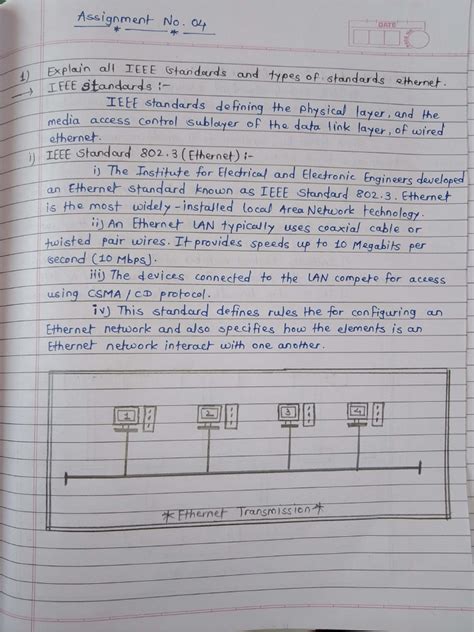 Assignment No. 04
DATE
1) Explain all IEEE Standards and types of standards ethernet.
→ IEEE standards :-
IEEE standards defining the physical layer, and the
media access control sublayer of the data link layer, of wired
ethernet.
i) IEEE Standard 802.3 (Ethernet) :-
i) The Institute for Electrical and Electronic Engineers developed
an Ethernet standard known as IEEE Standard 802.3. Ethernet
is the most widely-installed local Area Network technology.
ii) An Ethernet LAN typically uses coaxial cable or
twisted pair wires. It provides speeds up to 10 Megabits per
second (10 Mbps).
iii) The devices connected to the LAN compete for access
using CSMA / CD protocol.
iv) This standard defines rules the for configuring an
Ethernet network and also specifies how the elements is an
Ethernet network interact with one another.
1 2 3 4
*Ethernet Transmission*